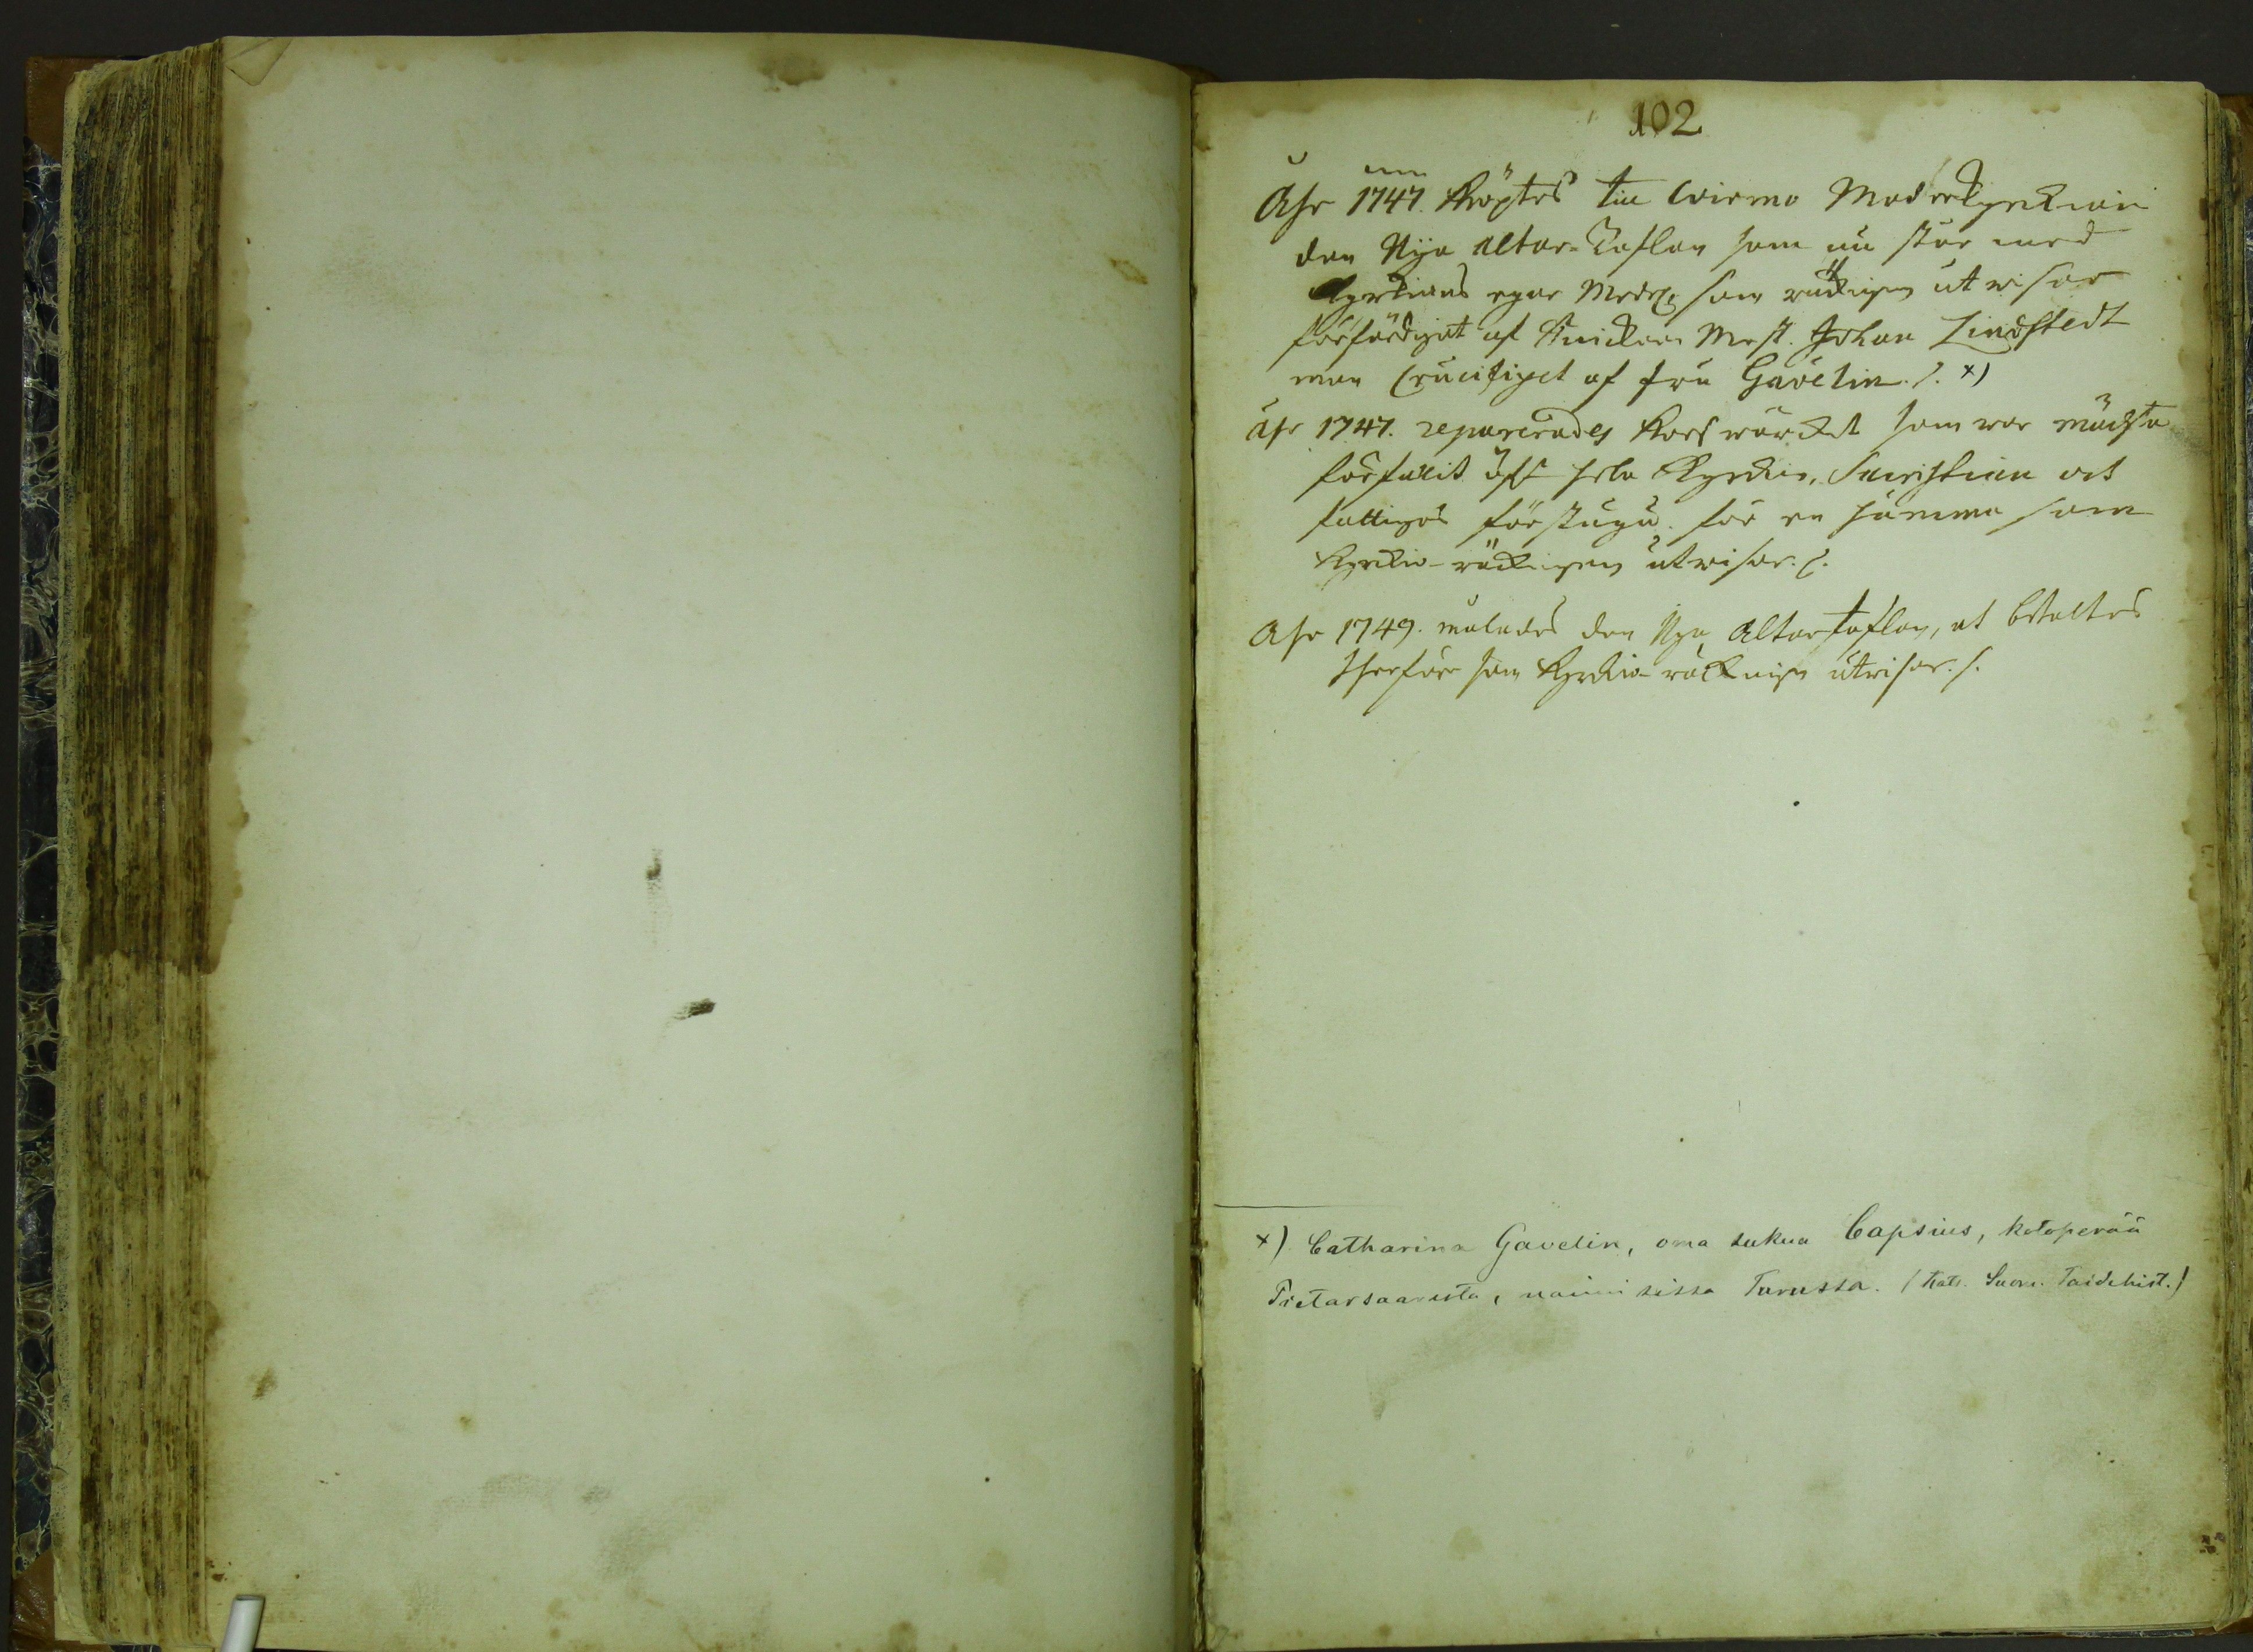 102
Åhr 1747. Kiöptes till Wirmo Moderkyrckian
den Nya Altar-Taflan som nu står med
Kyrkians egne Medel, som räckningen utwisar
förfärdigat af Snickare Mest. Johan Lindstedt
men Crucifixet af fru Gavelin. x)
Åhr 1747. reparerades Korswärcket som war mäckta
förfallit öfwer hela Kyrckian, Sacristian och
fattigas förstugu. för en summa som
Kyrckio-räckningen utwisar.
Åhr 1749. målades den Nya Altartaflan, at betaltes
therföre som Kyrckio-räckningen utwisar.
x) Catharina Gavelin, oma sukua Capsius, kotoperää
Pietarsaaresta, naimisissa Turussa. (Kats. Suom. Taidehist.)